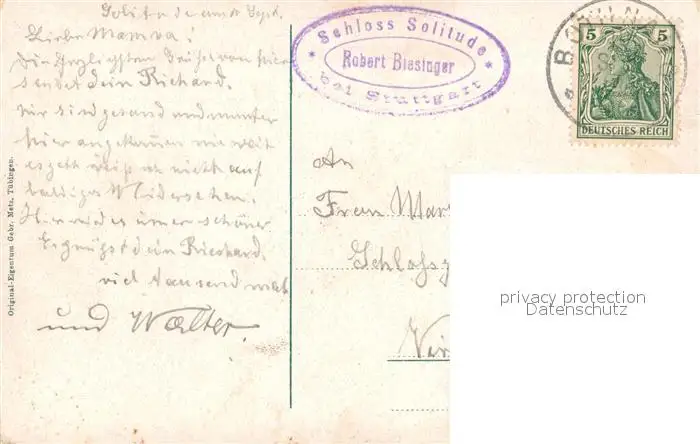 Solitude den Sept.
Liebe Mamma!
Die herzlichsten Grüße von hier
sendet dein Richard.
Wir sind gesund und munter
hier angekommen wie weit
es geht weiß ich nicht auf
baldiges Wiedersehen.
Hier wird es immer schöner
Es grüßt dein Richard.
viel tausend mal
und Walter.
Original-Eigentum Gebr. Metz, Tübingen.
Schloss Solitude
Robert Biesinger
bei Stuttgart
5 5
DEUTSCHES REICH
An
Frau Mar
Schloss
privacy protection
Datenschutz